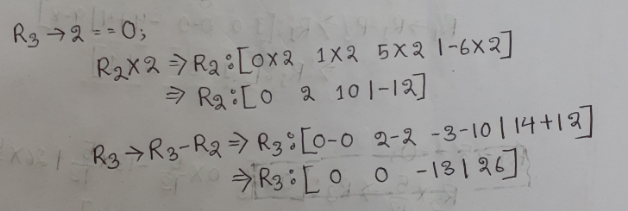 R₃ → 2 == 0;
R₂×2 ⇒ R₂:[0×2 1×2 5×2 |-6×2]
⇒ R₂:[0 2 10 |-12]
R₃ → R₃-R₂ ⇒ R₃:[0-0 2-2 -3-10 | 14+12]
⇒ R₃:[ 0 0 -13 | 26]